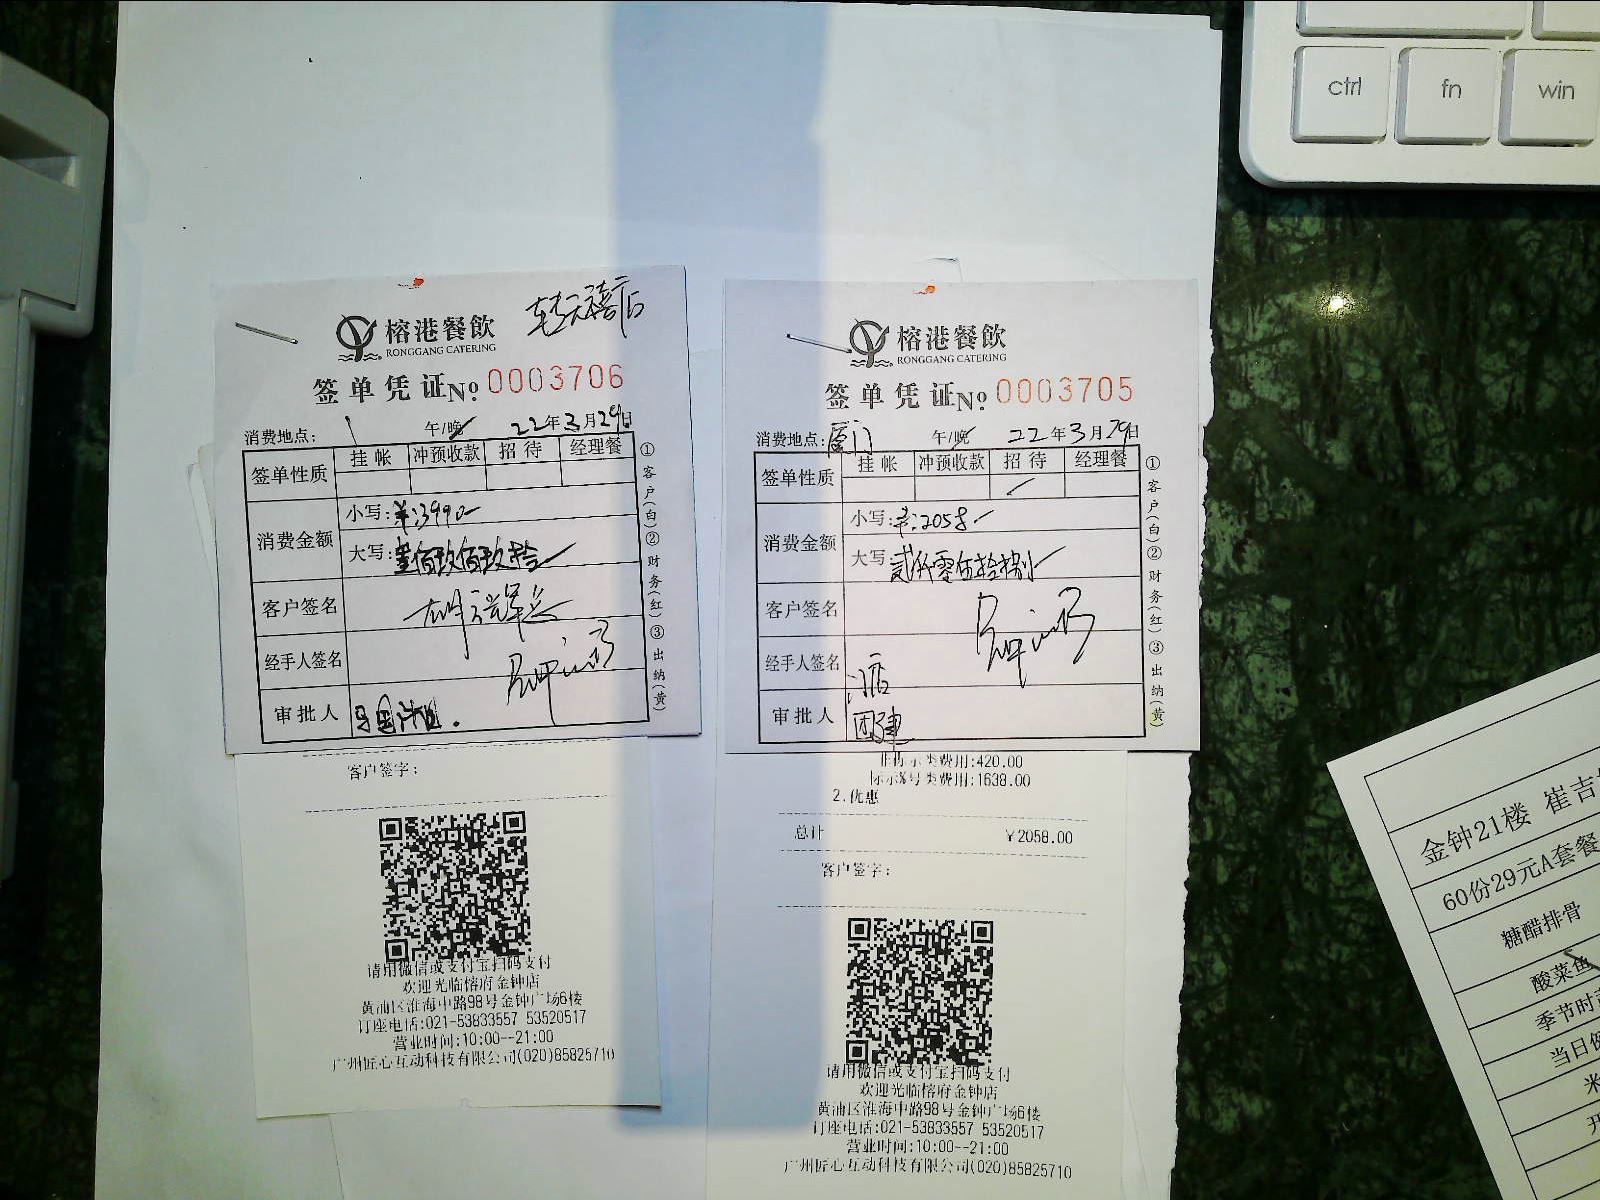 ctrl fn win
转天禧店
榕港餐飲
RONGGANG CATERING
签单凭证No. 0003706
消费地点: 午/晚 22年3月29日
签单性质 挂帐 冲预收款 招待 经理餐
消费金额
小写:¥:3990
大写:
客户签名
经手人签名
审批人
①客户(白)②财务(红)③出纳(黄)
客户签字:
请用微信或支付宝扫码支付
欢迎光临榕府金钟店
黄浦区淮海中路98号金钟广场6楼
订座电话:021-53833557 53520517
营业时间:10:00--21:00
广州匠心互动科技有限公司(020)85825710
榕港餐飲
RONGGANG CATERING
签单凭证No. 0003705
消费地点:厦门 午/晚 22年3月29日
签单性质 挂帐 冲预收款 招待 经理餐
消费金额
小写:¥:2058
大写:贰仟零伍拾捌
客户签名
经手人签名
审批人 团建
①客户(白)②财务(红)③出纳(黄)
类费用:420.00
类费用:1638.00
2.优惠
总计 ¥2058.00
客户签字:
请用微信或支付宝扫码支付
欢迎光临榕府金钟店
黄浦区淮海中路98号金钟广场6楼
订座电话:021-53833557 53520517
营业时间:10:00--21:00
广州匠心互动科技有限公司(020)85825710
金钟21楼 崔吉
60份29元A套餐
糖醋排骨
酸菜鱼
季节时
当日例
米
开